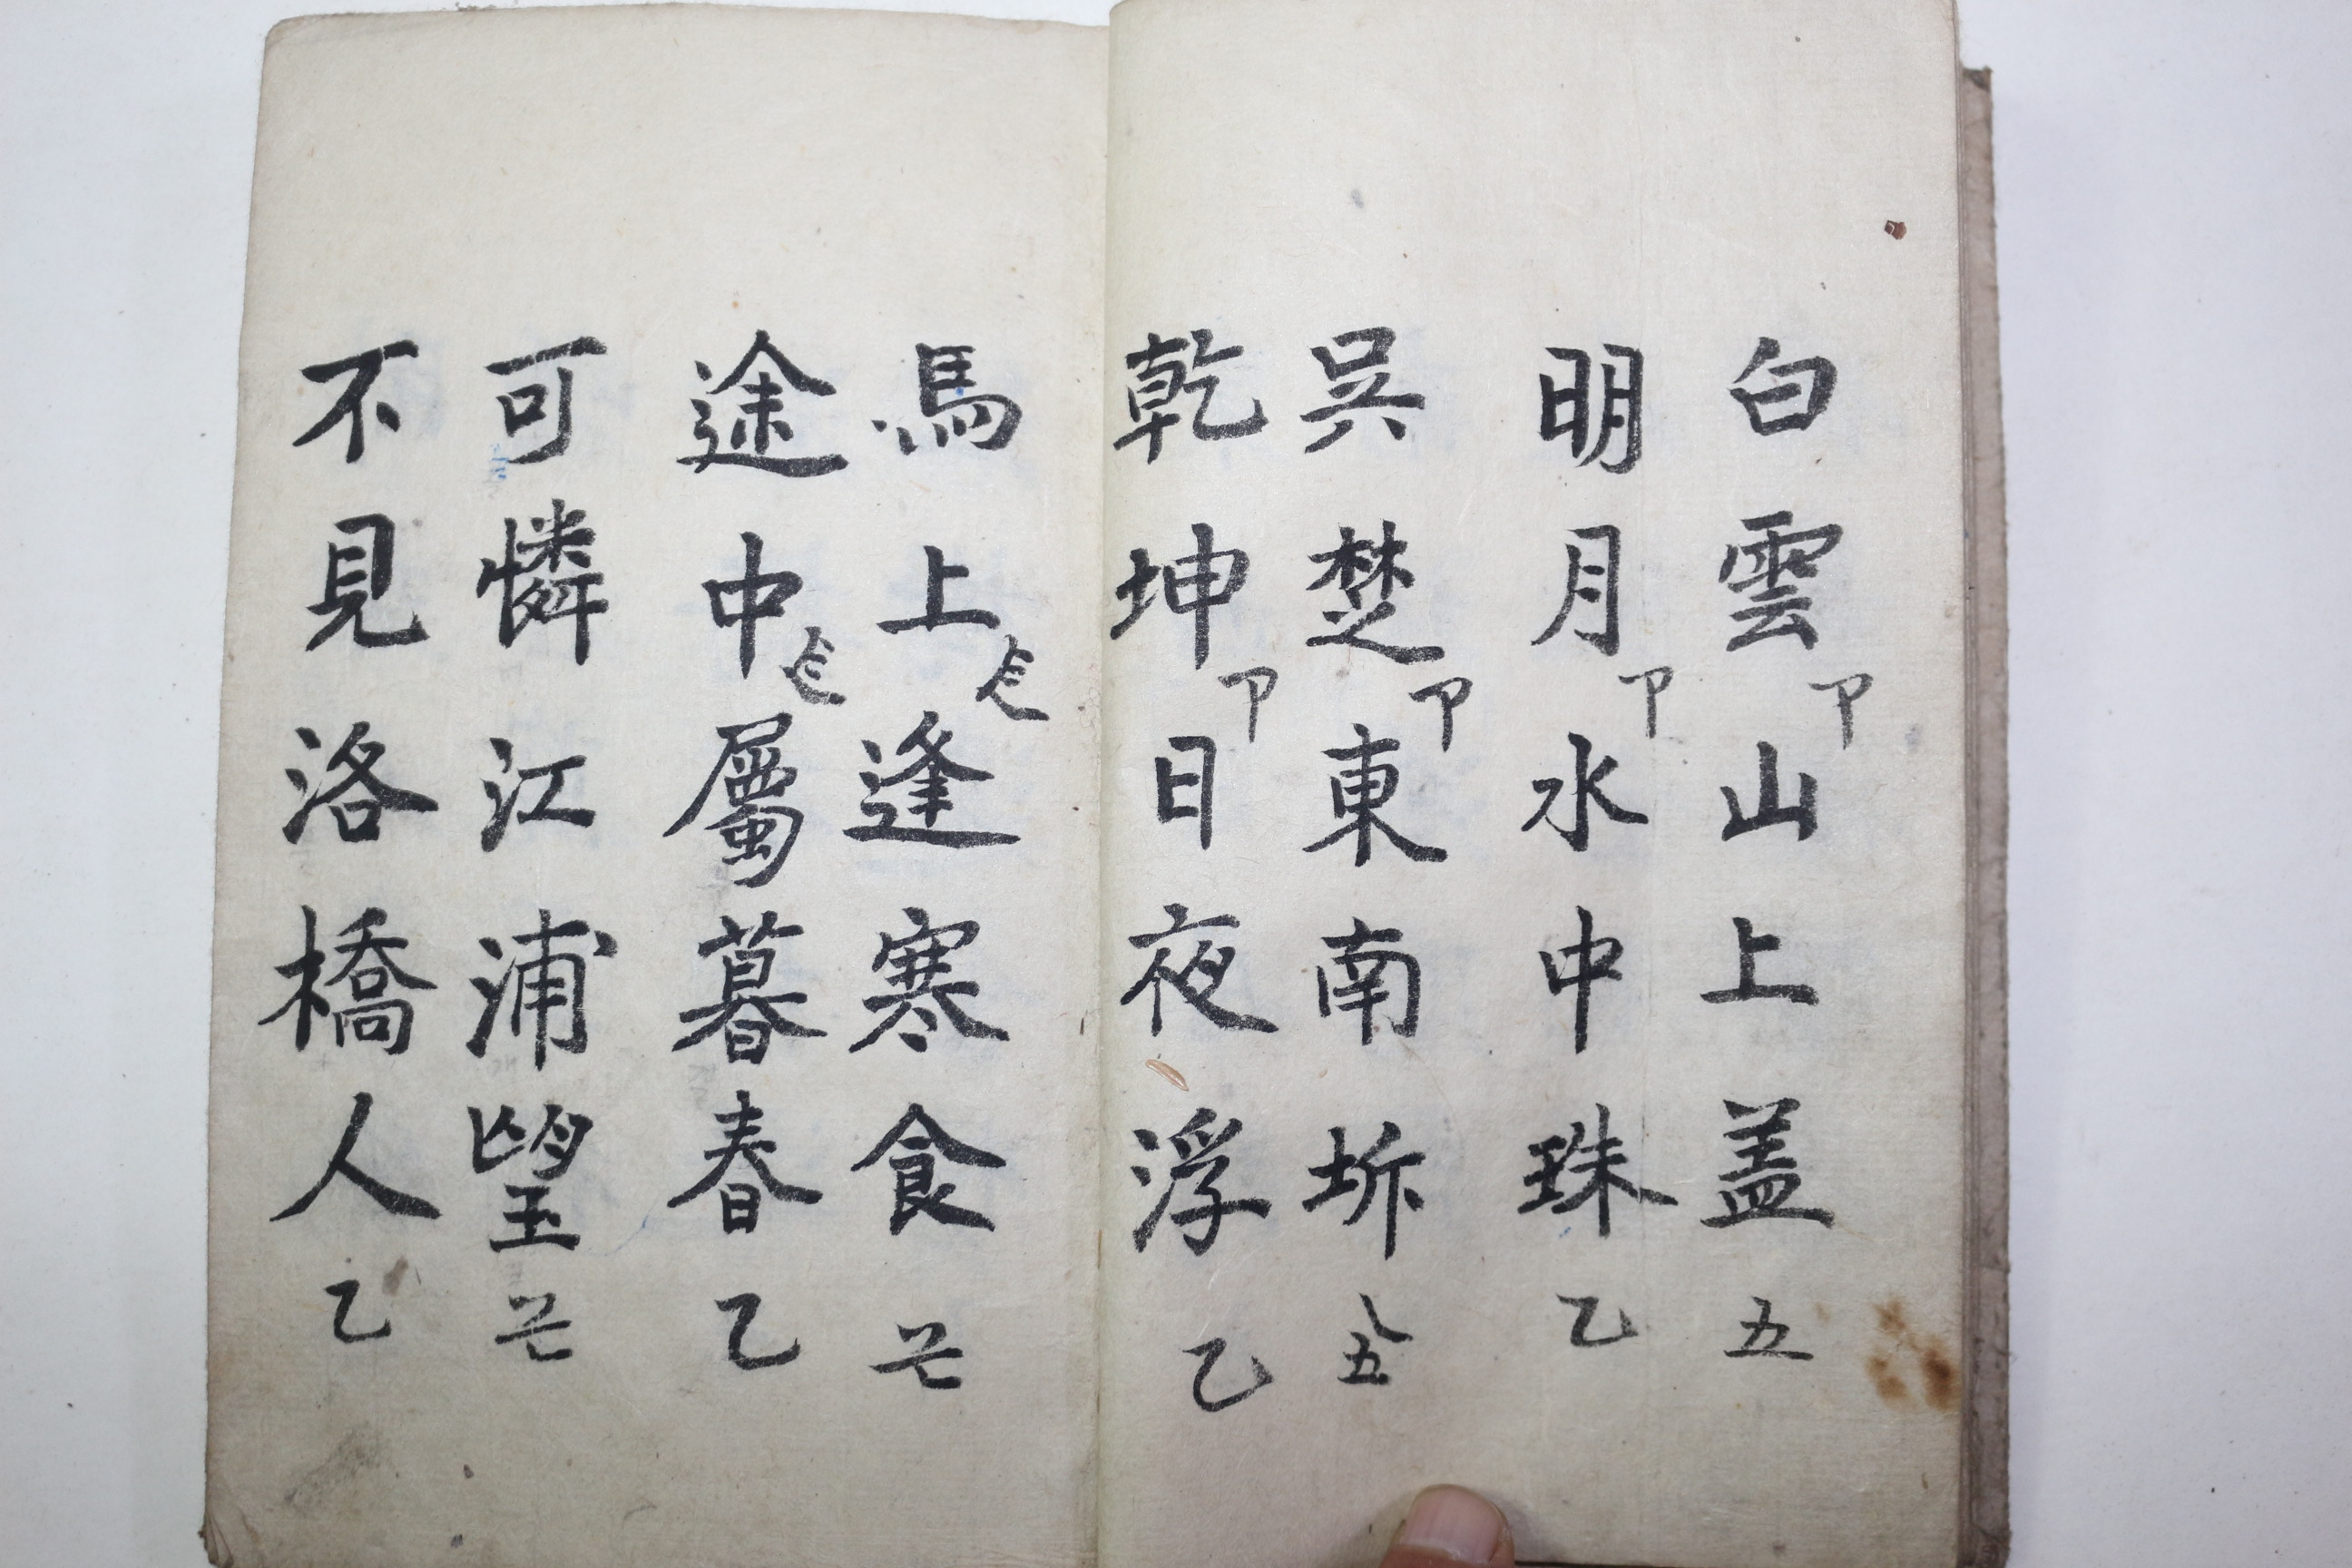 白雲卩山上盖五
明月卩水中珠乙
吳楚卩東南坼五
乾坤卩日夜浮乙
馬上逢寒食
途中屬暮春乙
可憐江浦望
不見洛橋人乙